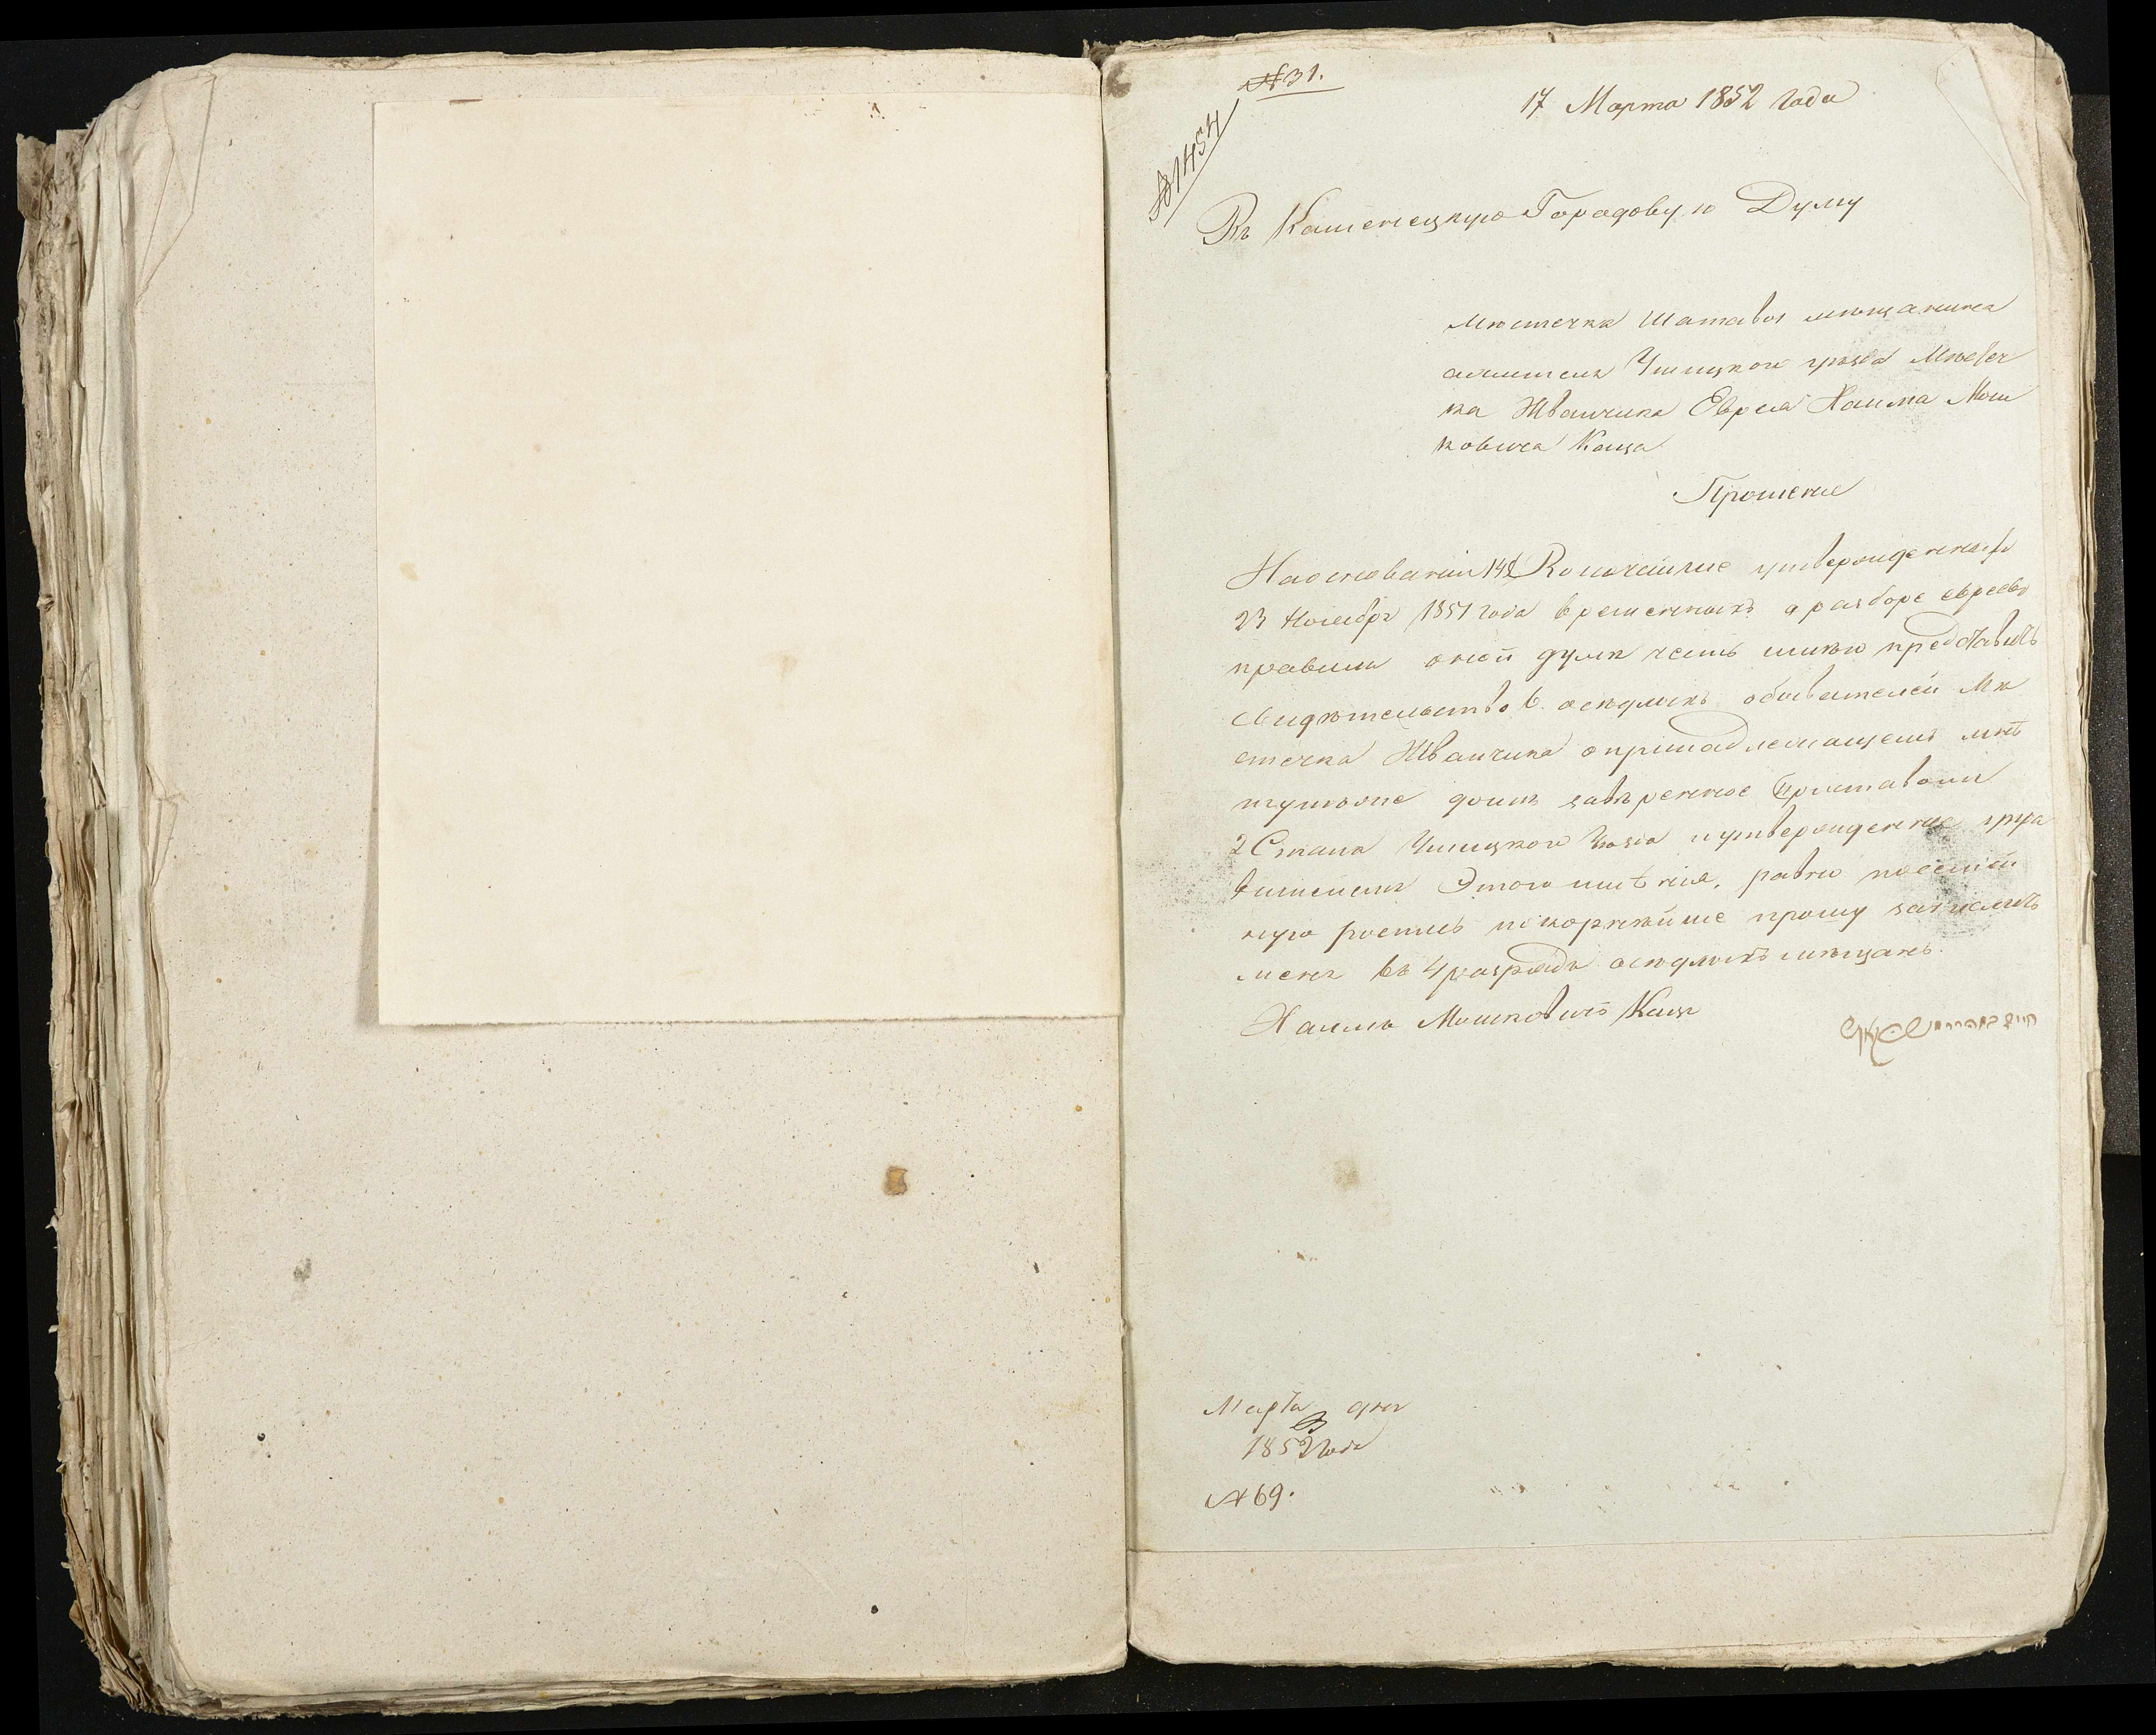 № 31.
17 Марта 1852 года
№ 1454
Въ Каменецкую Городовую Думу
Мѣстечка Шатавы мѣщанина
жителя Ушицкого уѣзда Мѣстеч
ка Жванчика Еврея Хаима Мош
ковича Каца
Прошение
На основании 14§ Высочайше утвержденныхъ
23 Ноября 1851 года временныхъ о разборе евреевъ
правилъ оной думѣ честь имѣю представить
свидѣтельство 6. осѣдлыхъ обывателей Мѣ
стечка Жванчика о принадлежащемъ мнѣ
тутъ доме завѣренное Приставомъ
2 Стана Ушицкого Уѣзда и утвержденное упра
вителемъ Этого имѣния, равно посемей
ную роспись покорнѣйше прошу зачислить
меня въ 4 разрядъ осѣдлыхъ мѣщанъ.
Хаимъ Мошковичъ Кацъ
Марта дня
1852 года
№ 69.